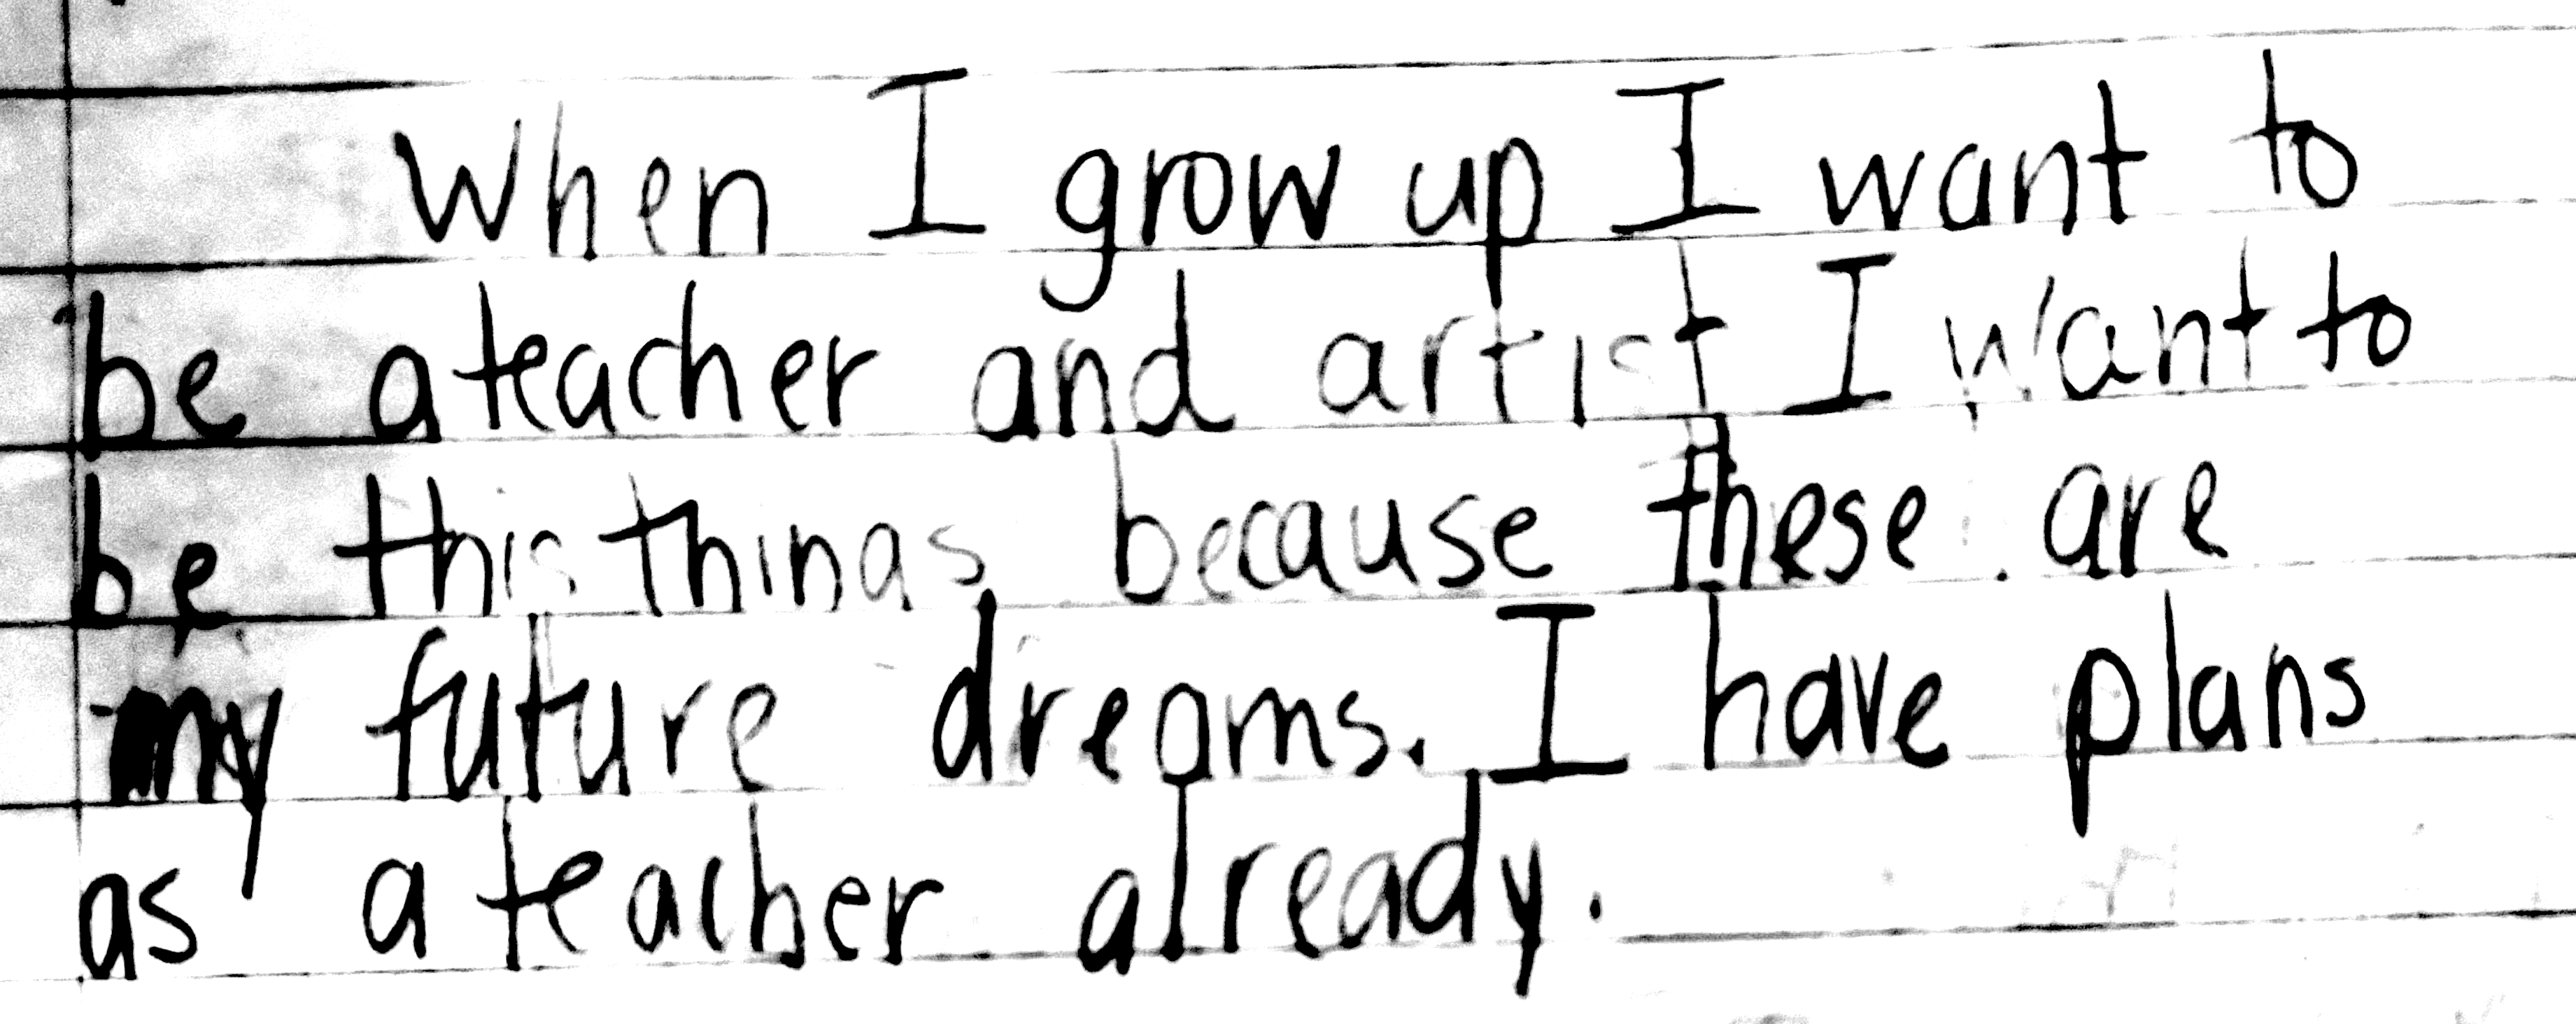 When I grow up I want to
be a teacher and artist I want to
be this things because these are
my future dreams. I have plans
as a teacher already.